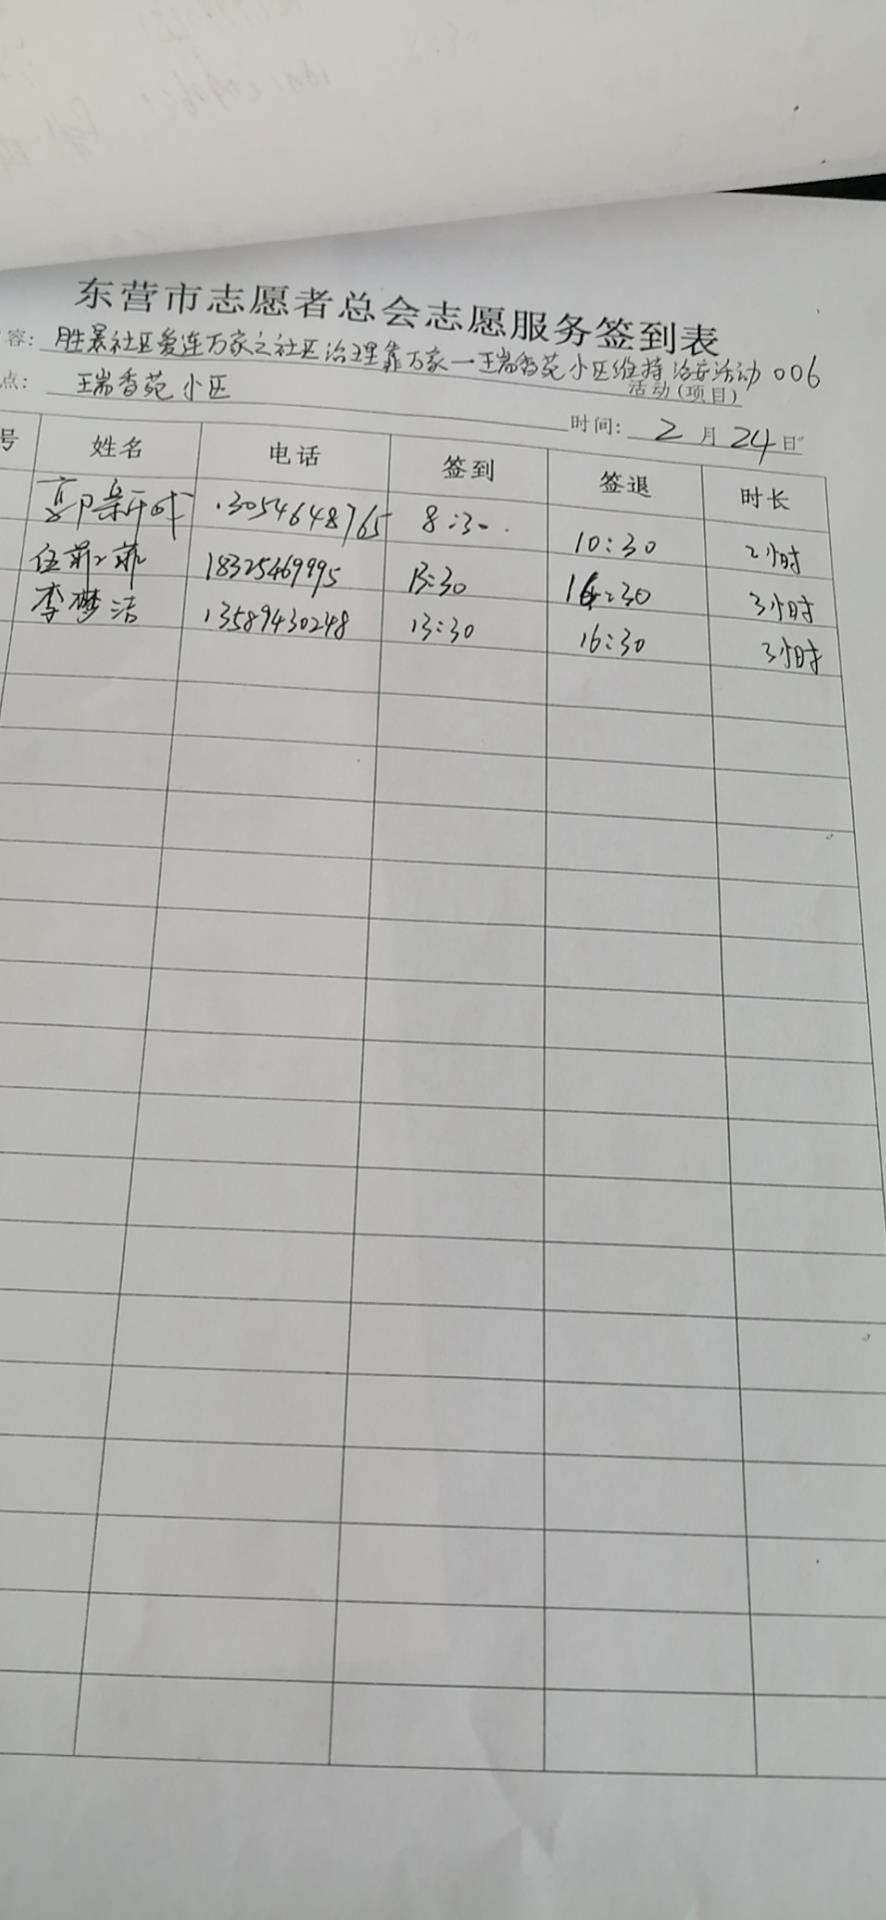 东营市志愿者总会志愿服务签到表
容: 胜景社区爱连万家之社区治理靠万家一瑞香苑小区维持治安活动006
活动(项目)
点: 瑞香苑小区
时间: 2月24日
号 姓名 电话 签到 签退 时长
13054648765 8:30 10:30 2小时
伍菲菲 18325469995 13:30 16:30 3小时
李梦洁 13589430248 13:30 16:30 3小时